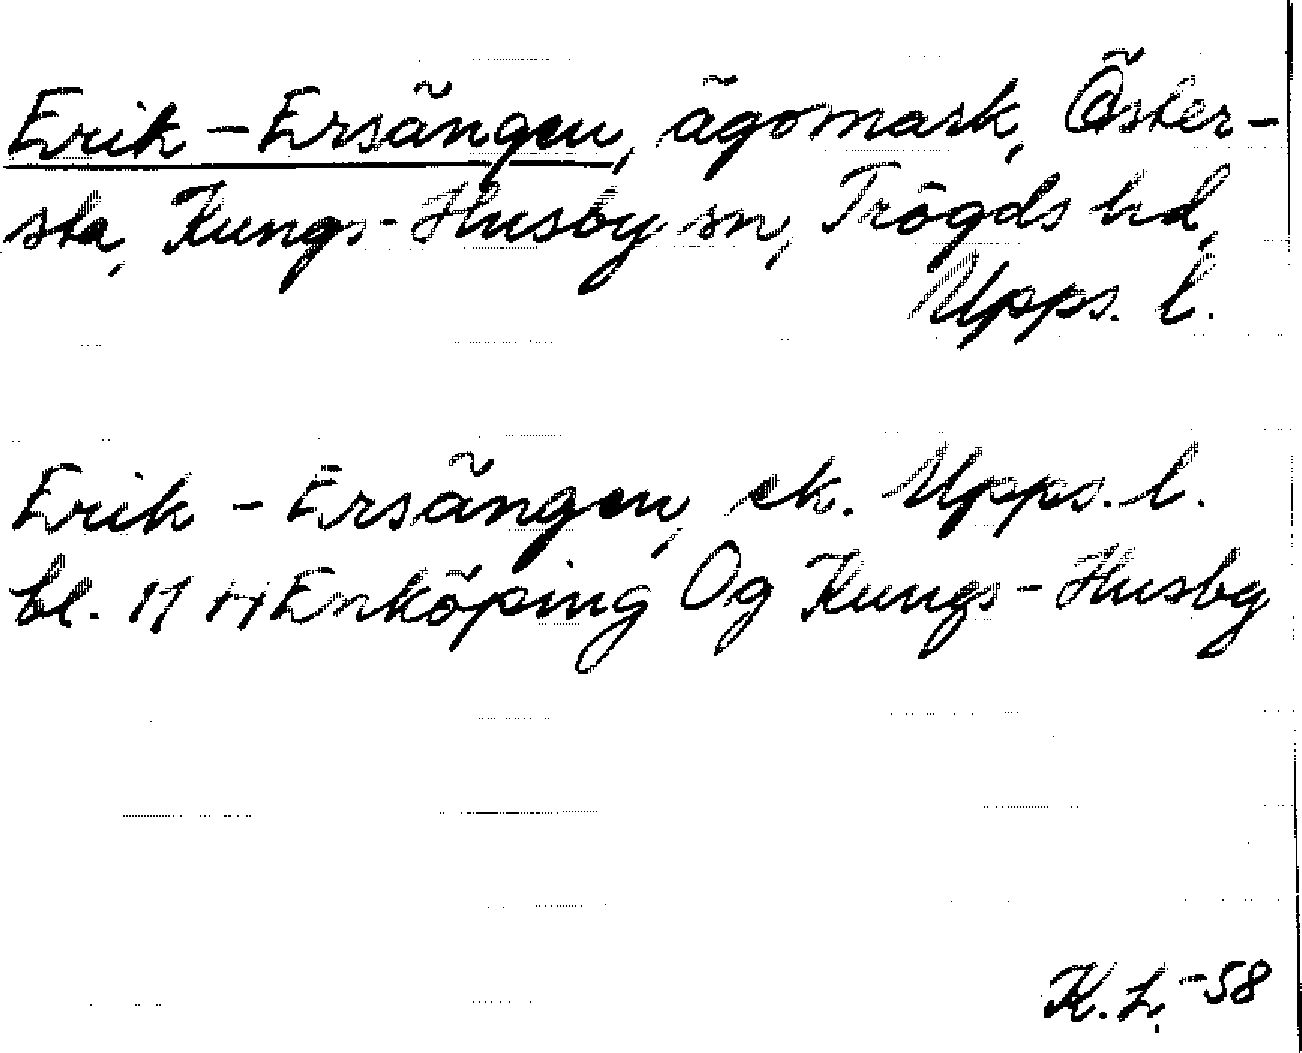 Erik-Ersängen, ägomark, Öster-
sta, Kungs-Husby sn, Trögds hd,
Upps. l.
Erik-Ersängen, ek. Upps. l.
bl. Enköping Og Kungs-Husby
K. L. -58